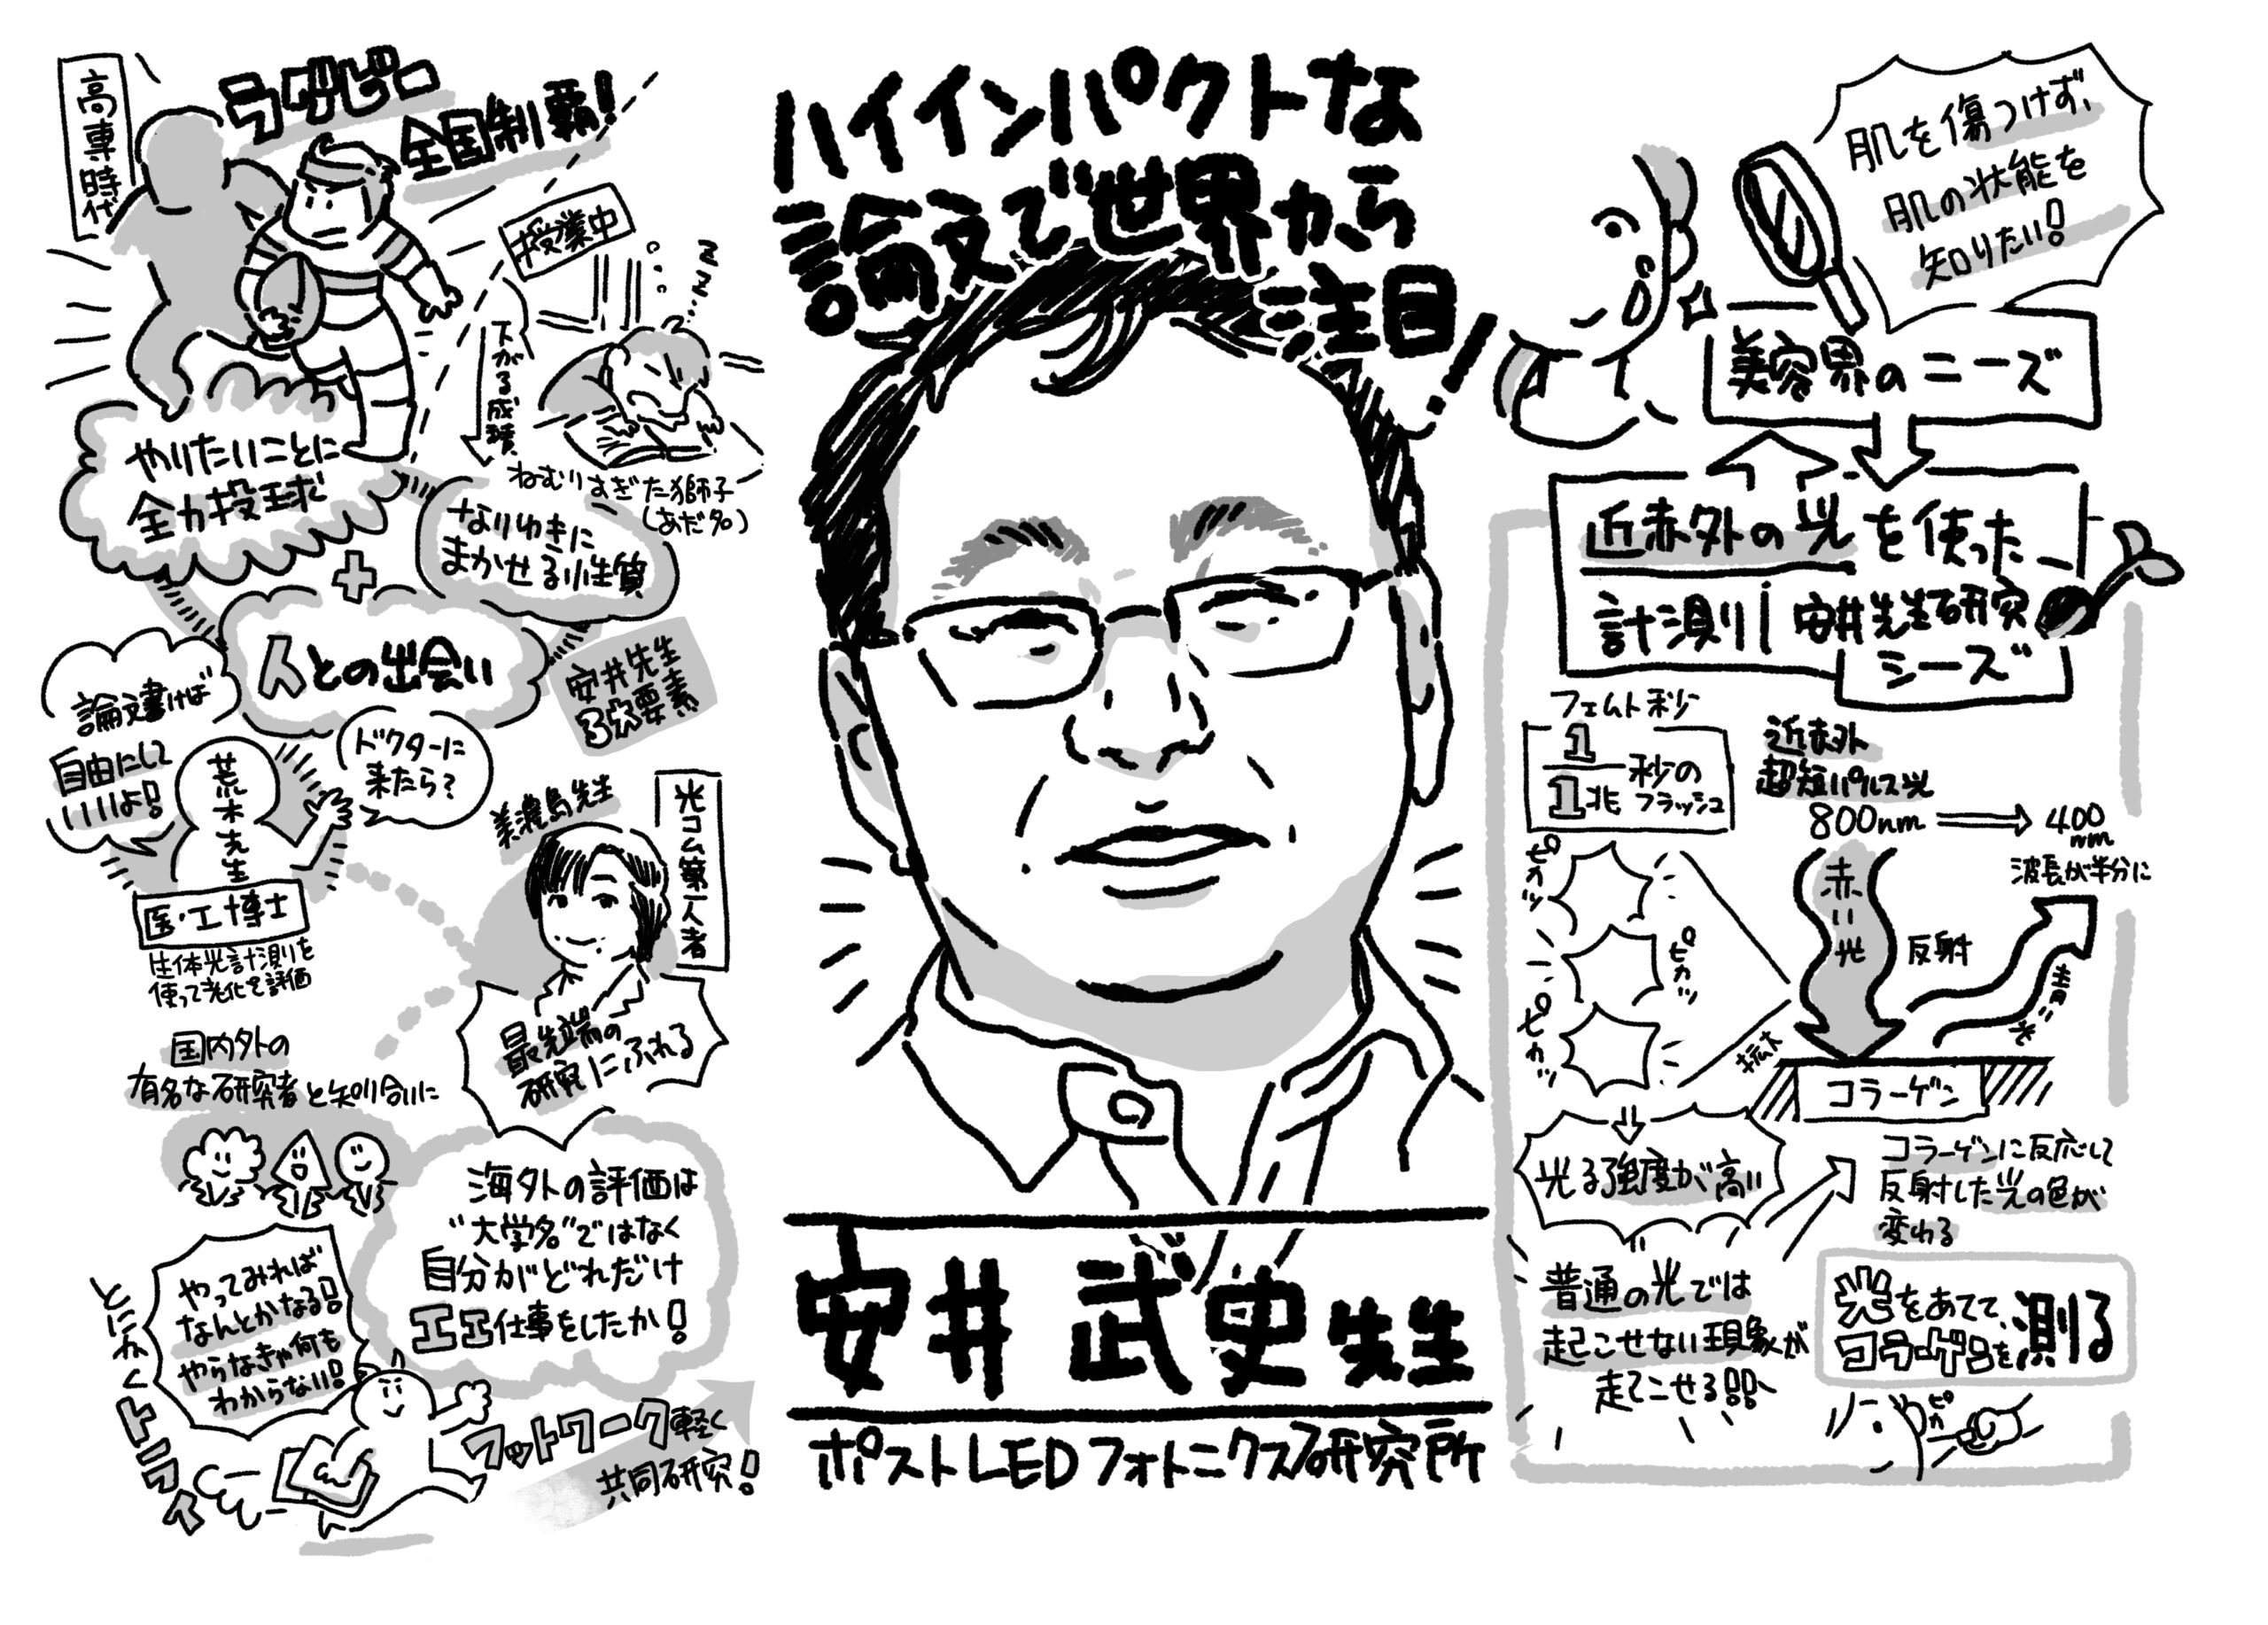 ハイインパクトな
論文で世界から
注目!
安井 武史先生
ポストLEDフォトニクス研究所
高専時代
ラグビー
全国制覇!
授業中
zzz...
下がる成績
ねむりすぎた獅子
(あだ名)
やりたいことに
全力投球
+
なりゆきに
まかせる性質
人との出会い
安井先生
3大要素
論文書けば
自由にして
いいよ!
荒木先生
ドクターに
来たら?
医・工博士
生体光計測を
使って老化を評価
美濃島先生
光コム第一人者
最先端の
研究にふれる
国内外の
有名な研究者と知り合いに
海外の評価は
“大学名”ではなく
自分がどれだけ
エエ仕事をしたか!
やってみれば
なんとかなる!
やらなきゃ何も
わからない!
とにかくトライ
フットワーク軽く
共同研究!
肌を傷つけず、
肌の状態を
知りたい!
美容界のニーズ
近赤外の光を使った
計測 安井先生研究
シーズ
フェムト秒
1
1兆
秒の
フラッシュ
近赤外
超短パルス光
800nm
400
nm
波長が半分に
ピカッ
ピカッ
ピカッ
拡大
赤い光
反射
青い光
コラーゲン
光る強度が高い
コラーゲンに反応して
反射した光の色が
変わる
普通の光では
起こせない現象が
起こせる!!
光をあてて、
コラーゲンを測る
ピカ